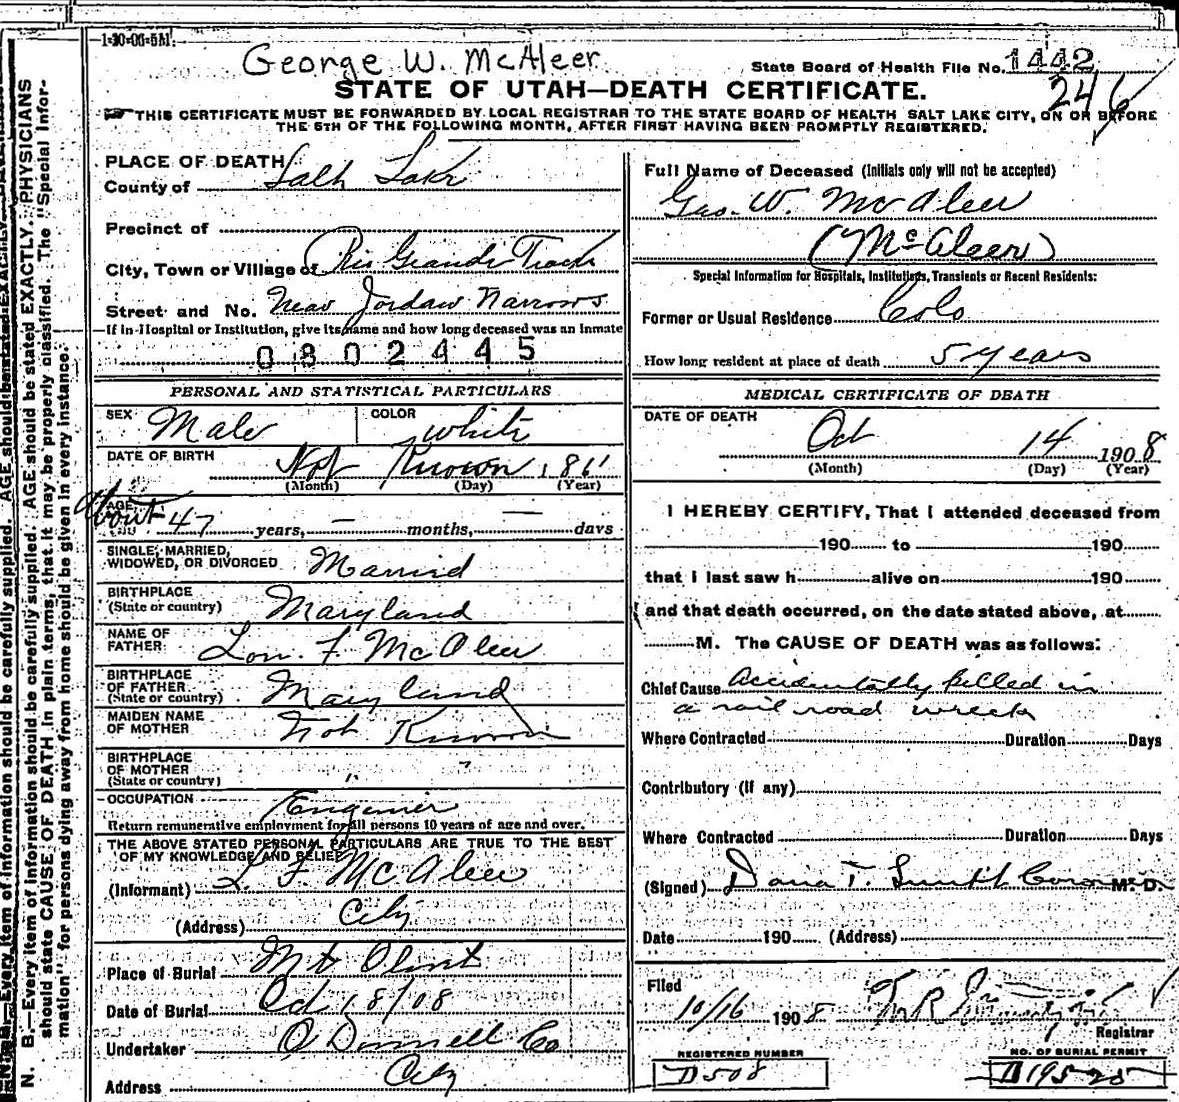 1-30-06-5M.
George W. McAleer
State Board of Health File No. 1442
246
STATE OF UTAH—DEATH CERTIFICATE.
THIS CERTIFICATE MUST BE FORWARDED BY LOCAL REGISTRAR TO THE STATE BOARD OF HEALTH SALT LAKE CITY, ON OR BEFORE
THE 5TH OF THE FOLLOWING MONTH, AFTER FIRST HAVING BEEN PROMPTLY REGISTERED.
PLACE OF DEATH
County of Salt Lake
Precinct of
City, Town or Village of Rio Grande Track
Street and No. Near Jordan Narrows
If in Hospital or Institution, give its name and how long deceased was an inmate
0302445
PERSONAL AND STATISTICAL PARTICULARS
SEX Male COLOR White
DATE OF BIRTH Not Known 1861
(Month) (Day) (Year)
AGE About 47 years, — months, — days
SINGLE, MARRIED,
WIDOWED, OR DIVORCED Married
BIRTHPLACE
(State or country) Maryland
NAME OF
FATHER F. McAleer
BIRTHPLACE
OF FATHER
(State or country) Maryland
MAIDEN NAME
OF MOTHER Not Known
BIRTHPLACE
OF MOTHER
(State or country) " "
OCCUPATION Engineer
Return remunerative employment for all persons 10 years of age and over.
THE ABOVE STATED PERSONAL PARTICULARS ARE TRUE TO THE BEST
OF MY KNOWLEDGE AND BELIEF
(Informant) L. F. McAleer
(Address) City
Place of Burial Mt Olivet
Date of Burial Oct 18/08
Undertaker O Donnell Co
Address City
Full Name of Deceased (Initials only will not be accepted)
Geo. W. McAleer
(McAleer)
Special Information for Hospitals, Institutions, Transients or Recent Residents:
Former or Usual Residence Colo
How long resident at place of death 5 years
MEDICAL CERTIFICATE OF DEATH
DATE OF DEATH
Oct 14 1908
(Month) (Day) (Year)
I HEREBY CERTIFY, That I attended deceased from
190 to 190
that I last saw h alive on 190
and that death occurred, on the date stated above, at
M. The CAUSE OF DEATH was as follows:
Chief Cause Accidentally killed in
a rail road wreck
Where Contracted Duration Days
Contributory (If any)
Where Contracted Duration Days
(Signed) Dana T. Smith Coroner M. D.
Date 190 (Address)
Filed
10/16 1908
Registrar
REGISTERED NUMBER
D508
NO. OF BURIAL PERMIT
B19525
N. B.—Every item of information should be carefully supplied. AGE should be stated EXACTLY. PHYSICIANS
should state CAUSE OF DEATH in plain terms, that it may be properly classified. The "Special Infor-
mation" for persons dying away from home should be given in every instance.